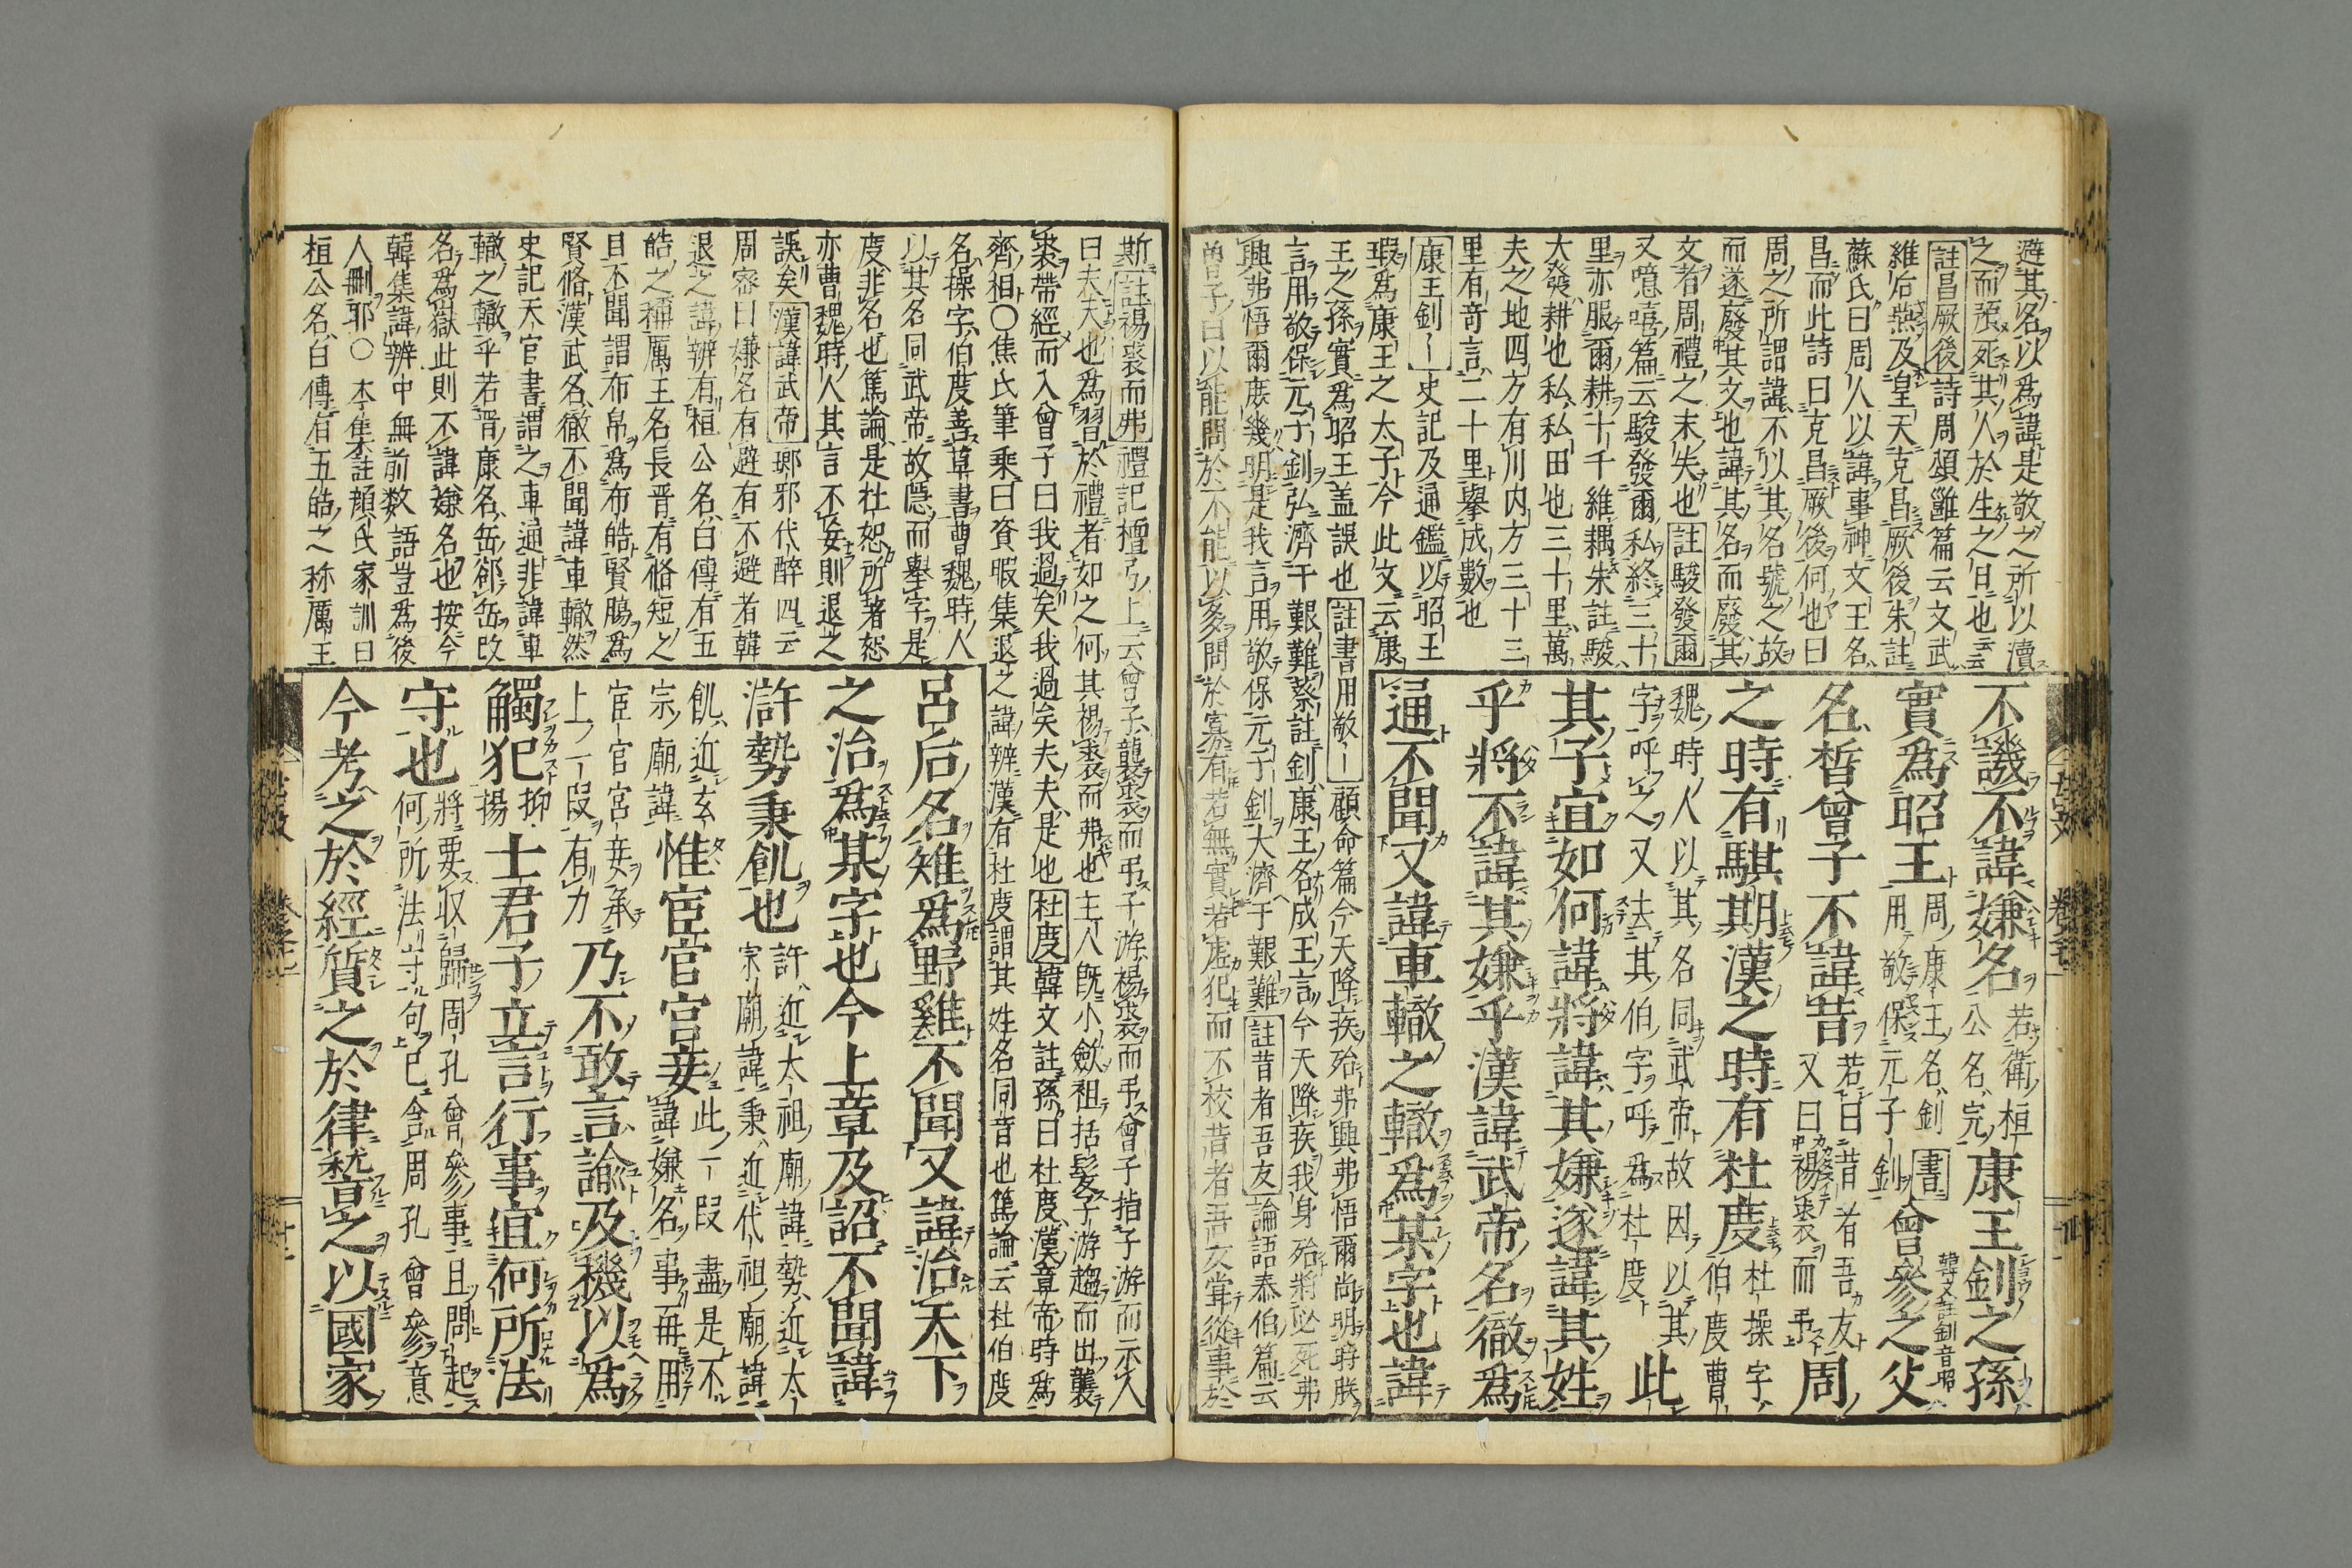 避其名以爲諱是敬之所以瀆
之而預死其人於生之日也云云
註昌厥後詩周頌雝篇云文武
維后燕及皇天克昌厥後朱註
蘇氏曰周人以諱事神文王名
昌而此詩曰克昌厥後何也曰
周之所謂諱不以其名號之故
而遂廢其文也諱其名而廢其
文者周禮之末失也註駿發爾
又噫嘻篇云駿發爾私終三十
里亦服爾耕十千維耦朱註駿
大發耕也私私田也三十里萬
夫之地四方有川内方三十三
里有奇言二十里擧成數也
康王釗史記及通鑑以昭王
瑕爲康王之太子今此文云康
王之孫實爲昭王盖誤也註書用敬顧命篇今天降疾殆弗興弗悟爾尚明時朕
言用敬保元子釗弘濟于艱難蔡註釗康王名成王言今天降疾我身殆將必死弗
興弗悟爾庶幾明是我言用敬保元子釗大濟于艱難註昔者吾友論語泰伯篇云
曽子曰以能問於不能以多問於寡有若無實若虛犯而不校昔者吾友甞從事於
不譏不諱嫌名若衛桓公名完康王釗之孫
實爲昭王周康王名釗書用敬保元子釗韓文註釗音昭曾參之父
名皙曾子不諱昔若曰昔者吾友又曰裼裘而弔周
之時有騏期漢之時有杜度杜操字伯度曹
魏時人以其名同武帝故因以其字呼之又去其伯字呼爲杜度此
其子宜如何諱將諱其嫌遂諱其姓
乎將不諱其嫌乎漢諱武帝名徹爲
通不聞又諱車轍之轍爲某字也諱
斯註裼裘而弗禮記檀弓上云曾子襲裘而弔子游裼裘而弔曾子指子游而示人
曰夫夫也爲習於禮者如之何其裼裘而弗也主人既小斂袒括髮子游趨而出襲
裘帶絰而入曾子曰我過矣我過矣夫夫是也杜度韓文註孫曰杜度漢章帝時爲
齊相○焦氏筆乘曰資暇集退之諱辨漢有杜度謂其姓名同音也篤論云杜伯度
名操字伯度善草書曹魏時人
以其名同武帝故隱而擧字是
度非名也篤論是杜恕所著恕
亦曹魏時人其言不妄則退之
誤矣漢諱武帝瑯邪代醉四云
周密曰嫌名有避有不避者韓
退之諱辨有桓公名白傳有五
皓之稱厲王名長晋有脩短之
目不聞謂布帛爲布皓腎膓爲
腎脩漢武名徹不聞諱車轍然
史記天官書謂之車通非諱車
轍之轍乎若晋康名岳鄒岳改
名爲嶽此則不諱嫌名也按今
韓集諱辨中無前数語豈爲後
人刪耶○本集註顔氏家訓曰
桓公名白傳有五皓之称厲王
呂后名雉爲野雞不聞又諱治天下
之治爲某字也今上章及詔不聞諱
滸勢秉飢也許近太祖廟諱勢近太宗廟諱秉近代祖廟諱
飢近玄宗廟諱惟宦官宮妾此一段盡是不諱嫌名事冊用
宦官宮妾承上一段有力乃不敢言諭及機以爲
觸犯抑揚士君子立言行事宜何所法
守也將要収歸周孔曾參事且問起何所法守句已含周孔曾參意
今考之於經質之於律稽之以國家